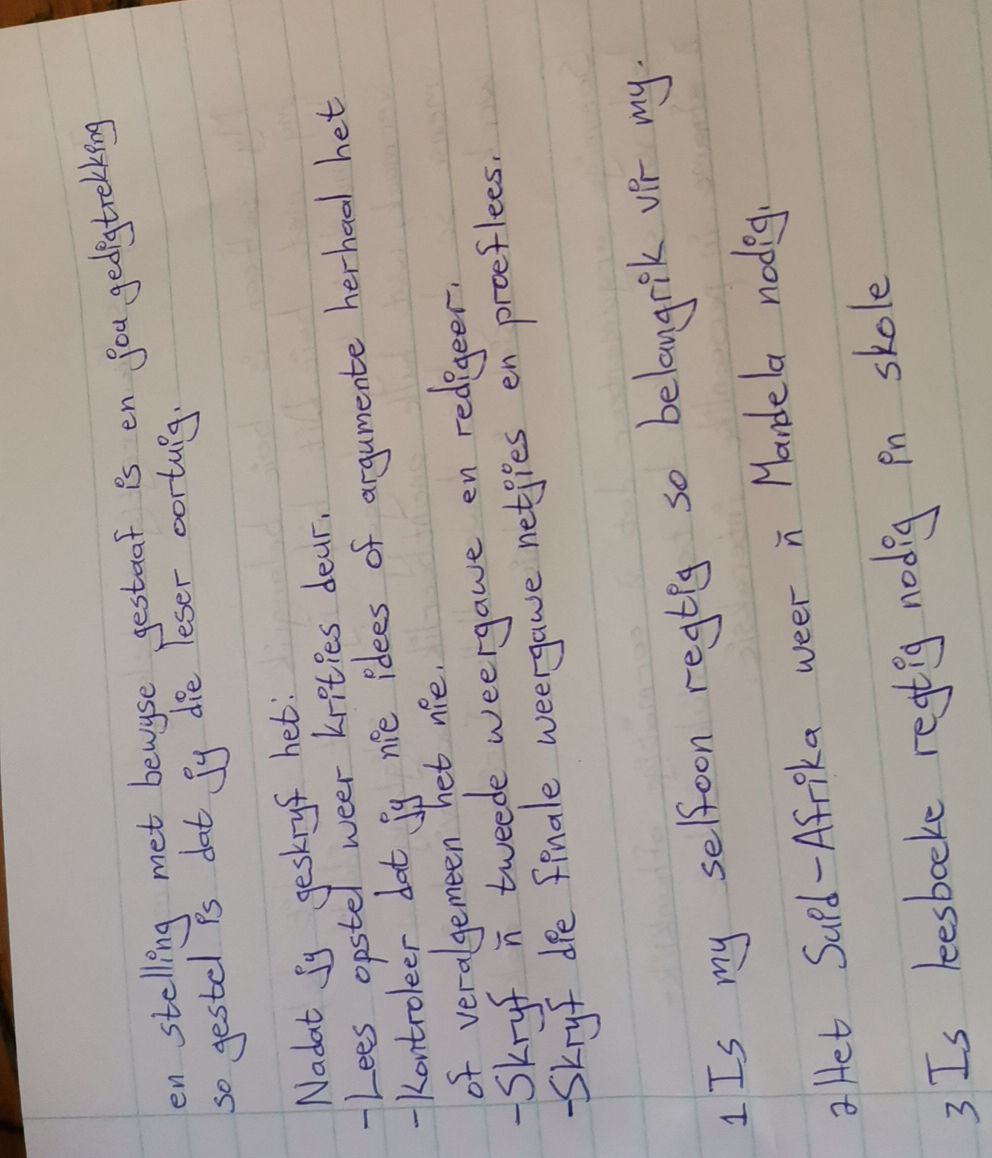 en stelling met bewyse gestaaf is en jou gedigtrekking
so gestel is dat jy die leser oortuig.
Nadat jy geskryf het:
-Lees opstel weer krities deur.
-Kontroleer dat jy nie idees of argumente herhaal het
of veralgemeen het nie.
-Skryf ñ tweede weergawe en redigeer.
-Skryf die finale weergawe netjies en proeflees.
1 Is my selfoon regtig so belangrik vir my.
2 Het Suid-Afrika weer ñ Mandela nodig.
3 Is leesboeke regtig nodig in skole